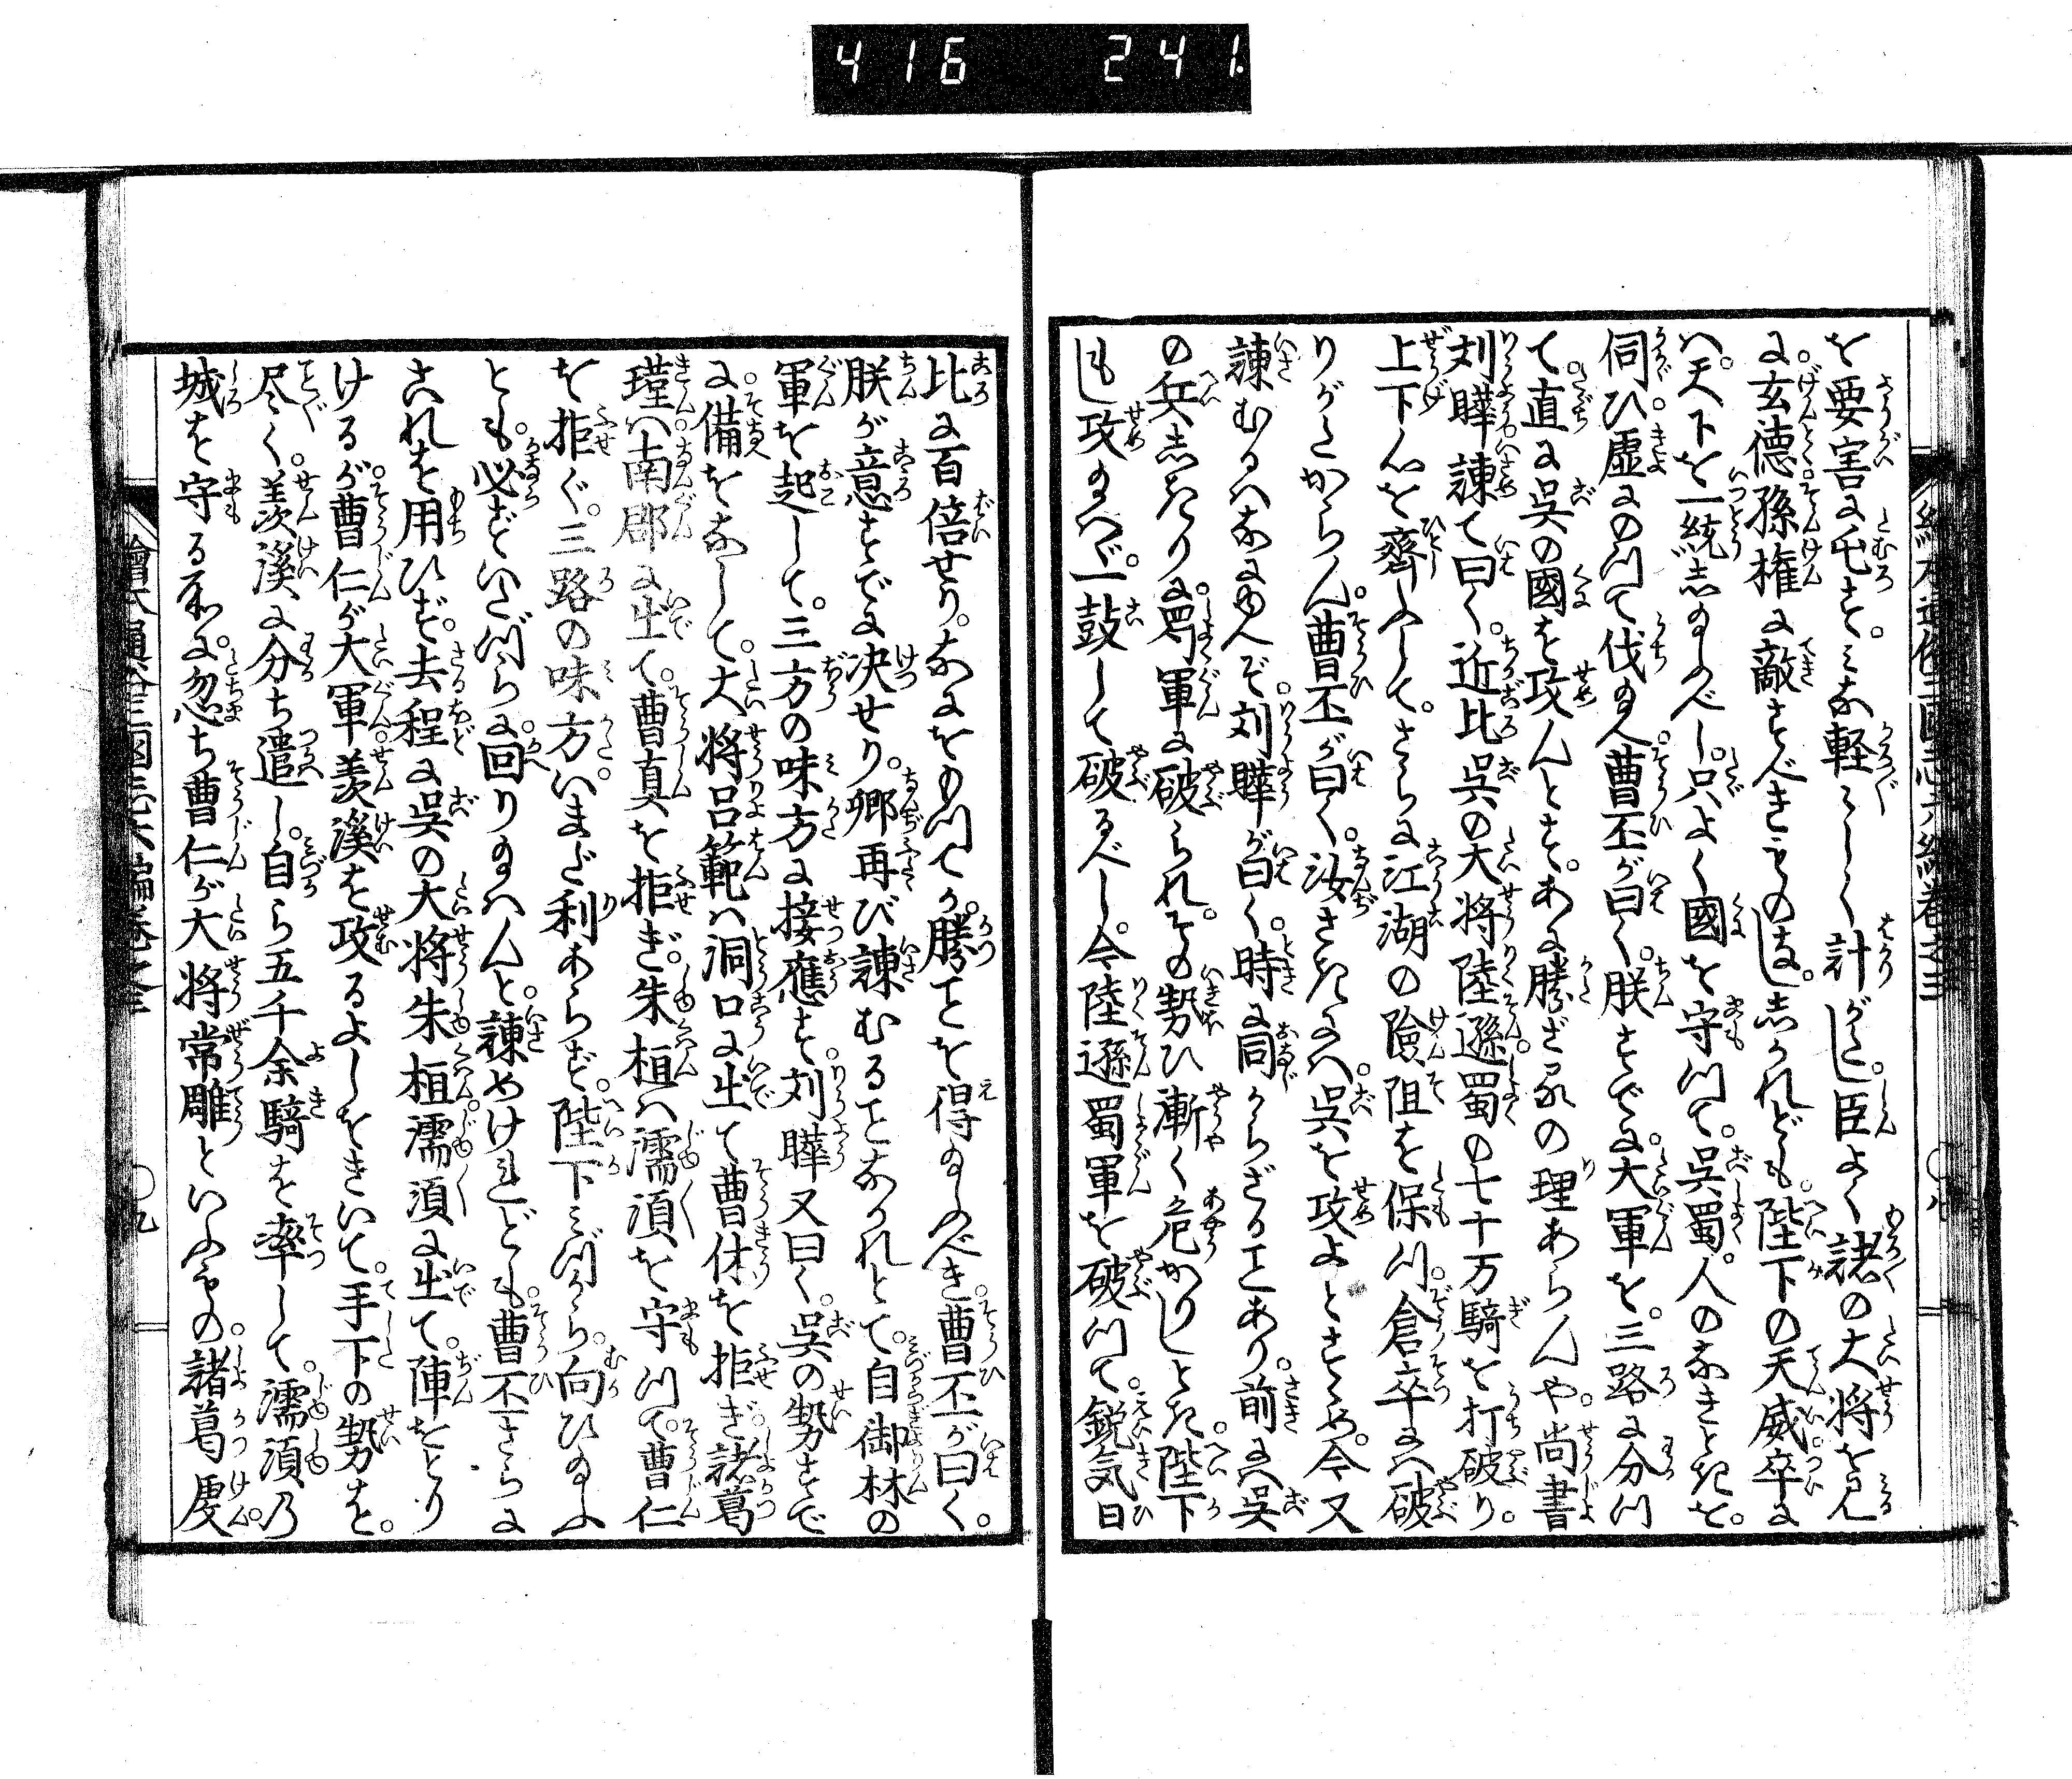 416 241
を要害に屯す。みな軽々しく計がたし。臣よく諸の大将を見
に。玄徳孫権に敵すべきものなし。しかれども。陛下の天威卒に
ハ。天下を一統し給ふべし。只よく國を守つて。呉蜀。人のなきとき。を
伺ひ。虚にのつて伐給へ。曹丕が曰く。朕すでに。大軍を。三路に分つ
て。直に呉の國を攻んとす。あに勝ざるの理あらんや。尚書
刘曄諫て曰く。近比呉の大将陸遜。蜀の七十万騎を打破り。
上下心を齊ふして。さらに江湖の險阻を保つ。倉卒にハ破
りがたからん。曹丕が曰く。汝さきにハ。呉を攻よとすゝめ。今又
諫むるハなにゆへぞ。刘曄が曰く。時に同からざることあり。前にハ呉
の兵しきりに。蜀軍に破られ。その勢ひ漸く危かりしとき。陛下
もし攻給ハヾ。一鼓して破るべし。今陸遜蜀軍を破つて。鋭気日
比に百倍せり。なにをもつてか。勝ことを得給ふべき。曹丕が曰く。
朕が意すでに决せり。卿再び諫むることなかれとて。自御林の
軍を起して。三方の味方に接應す。刘曄又曰く。呉の勢すで
に。備をなして。大将呂範ハ洞口に出て曹休を拒ぎ。諸葛
瑾ハ。南郡に出て。曹真を拒ぎ。朱桓ハ濡須を守つて。曹仁
を拒ぐ。三路の味方。いまだ利あらず。陛下みづから。向ひ給ふ
とも。必ずいたづらに。回り給ハんと。諫めけれども。曹丕さらに
これを用ひず。去程に呉の大将朱桓。濡須に出て。陣をとり
けるが。曹仁が大軍。羨溪を攻るよしをきいて。手下の勢を。
尽く。羨溪に分ち遣し。自ら五千余騎を率して。濡須乃
城を守る所に。忽ち曹仁が大将常雕といふもの。諸葛虔。